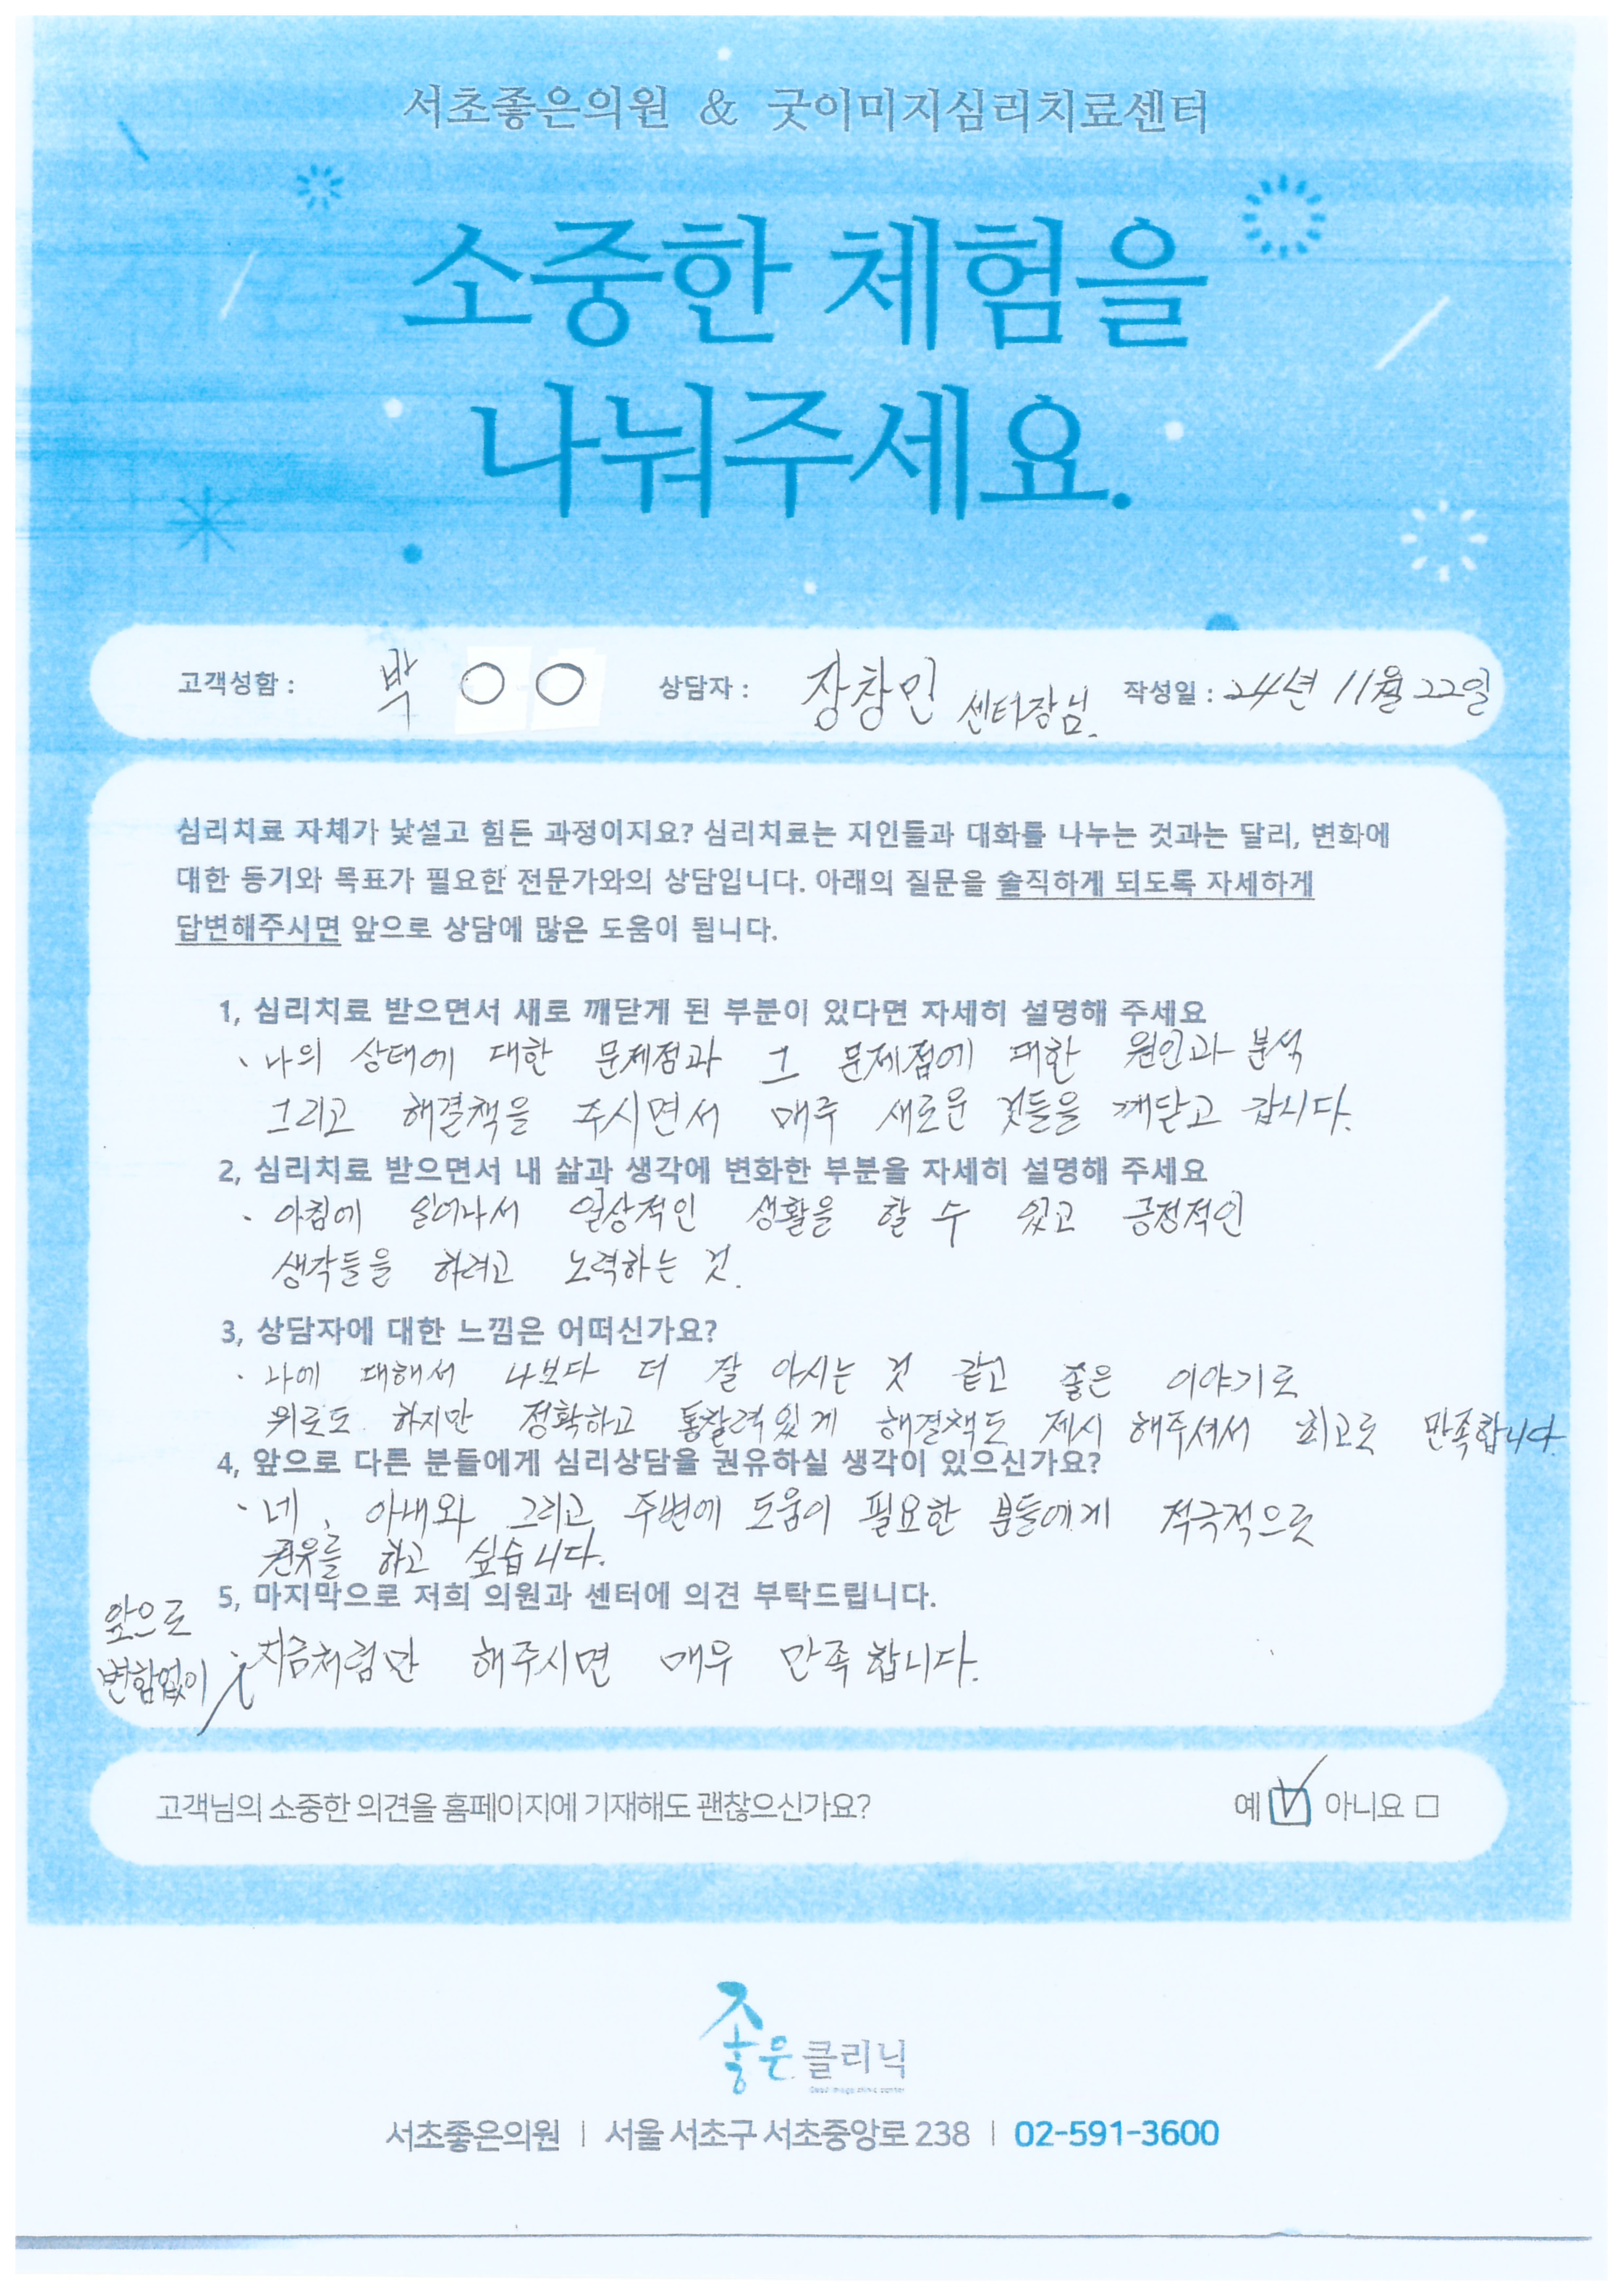 서초좋은의원 & 굿이미지심리치료센터
소중한 체험을
나눠주세요.
고객성함 : 박 ○○ 상담자 : 장창민 센터장님. 작성일 : 24년 11월 22일
심리치료 자체가 낯설고 힘든 과정이지요? 심리치료는 지인들과 대화를 나누는 것과는 달리, 변화에
대한 동기와 목표가 필요한 전문가와의 상담입니다. 아래의 질문을 솔직하게 되도록 자세하게
답변해주시면 앞으로 상담에 많은 도움이 됩니다.
1, 심리치료 받으면서 새로 깨닫게 된 부분이 있다면 자세히 설명해 주세요
· 나의 상태에 대한 문제점과 그 문제점에 대한 원인과 분석
그리고 해결책을 주시면서 매주 새로운 것들을 깨닫고 갑니다.
2, 심리치료 받으면서 내 삶과 생각에 변화한 부분을 자세히 설명해 주세요
· 아침에 일어나서 일상적인 생활을 할 수 있고 긍정적인
생각들을 하려고 노력하는 것.
3, 상담자에 대한 느낌은 어떠신가요?
· 나에 대해서 나보다 더 잘 아시는 것 같고 좋은 이야기로
위로도 하지만 정확하고 통찰력있게 해결책도 제시 해주셔서 최고로 만족합니다.
4, 앞으로 다른 분들에게 심리상담을 권유하실 생각이 있으신가요?
· 네, 아내와 그리고 주변에 도움이 필요한 분들에게 적극적으로
권유를 하고 싶습니다.
5, 마지막으로 저희 의원과 센터에 의견 부탁드립니다.
앞으로
변함없이
· 지금처럼만 해주시면 매우 만족합니다.
고객님의 소중한 의견을 홈페이지에 기재해도 괜찮으신가요? 예 ☑ 아니요 □
좋은 클리닉
Good image clinic center
서초좋은의원 | 서울 서초구 서초중앙로 238 | 02-591-3600